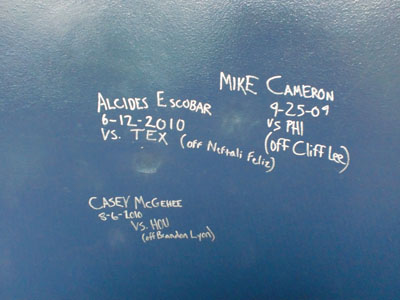 ALCIDES ESCOBAR
6-12-2010
VS. TEX (off Neftali Feliz)
MIKE CAMERON
9-25-09
VS PHI
(off Cliff Lee)
CASEY McGEHEE
8-6-2010
VS. HOU
(off Brandon Lyon)